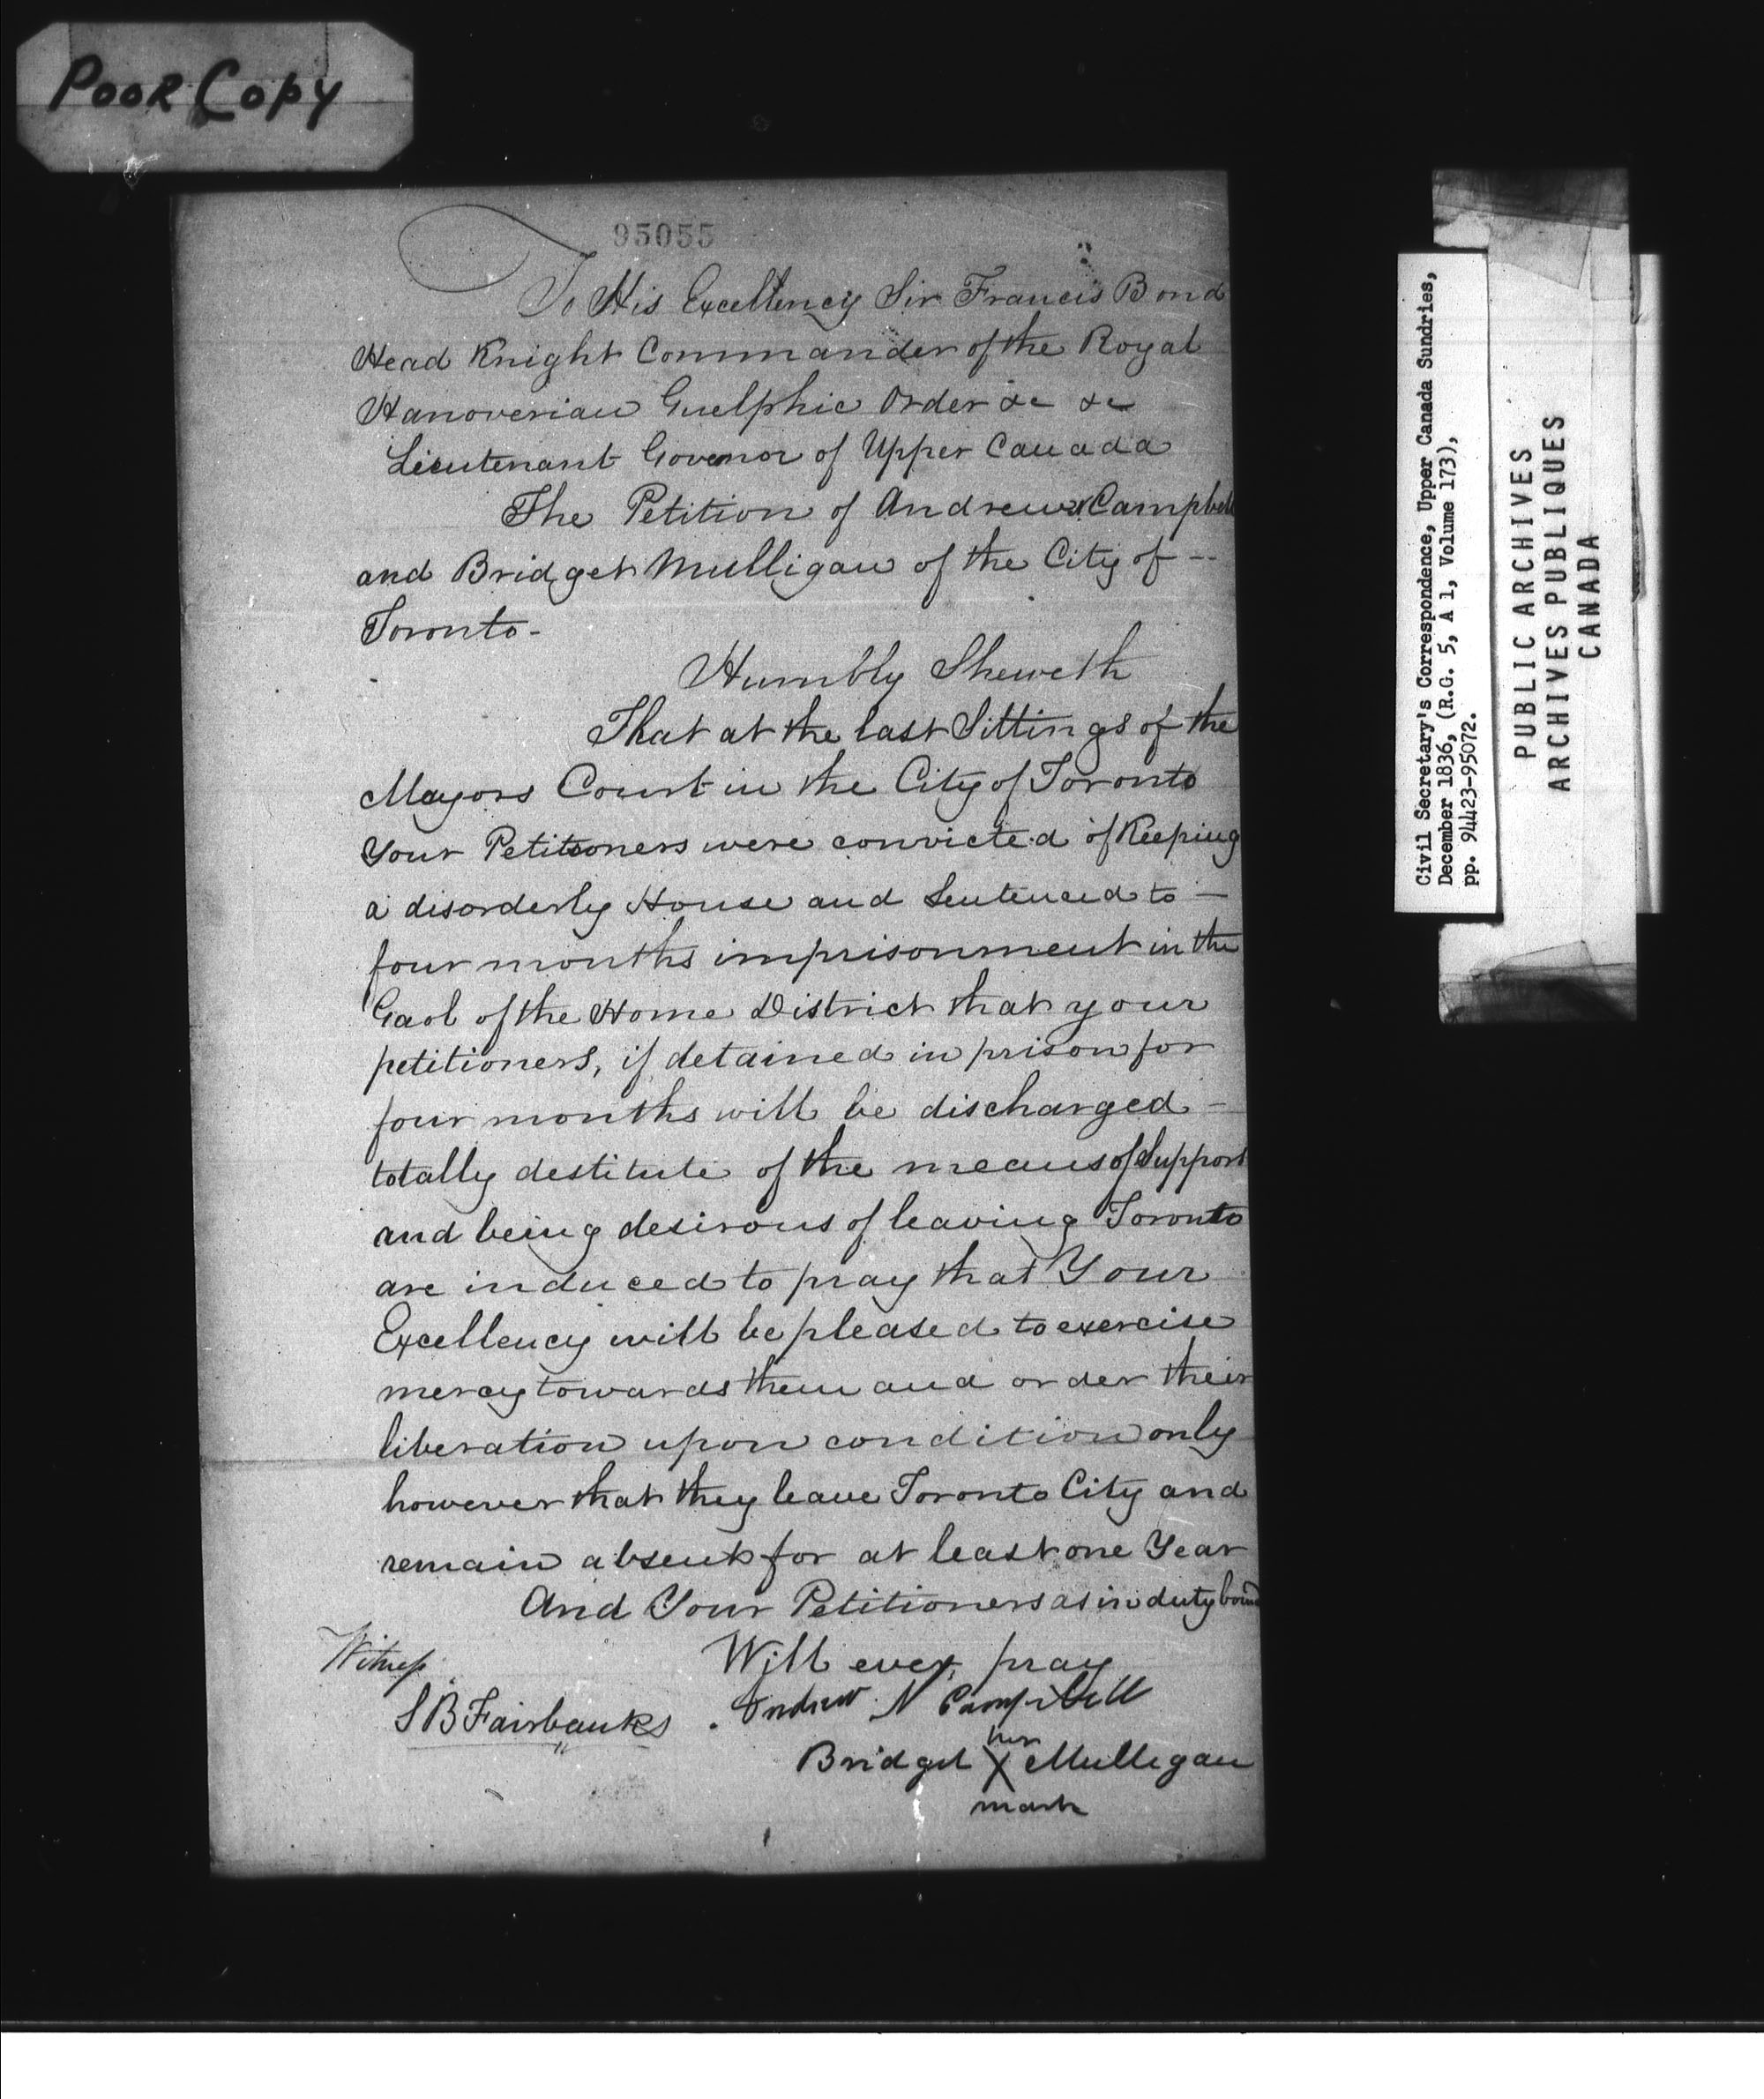 Poor Copy
95055
To His Excellency Sir Francis Bond
Head Knight Commander of the Royal
Hanoverian Guelphic Order &c &c
Lieutenant Govenor of Upper Canada
The Petition of Andrew Campbell
and Bridget Mulligan of the City of --
Toronto-
Humbly Sheweth
That at the last Sittings of the
Mayors Court in the City of Toronto
Your Petitioners were convicted of Keeping
a disorderly House and Sentenced to -
four months imprisonment in the
Gaol of the Home District that your
petitioners, if detained in prison for
four months will be discharged -
totally destitute of the means of Support
and being desirous of leaving Toronto
are induced to pray that Your
Excellency will be pleased to exercise
mercy towards them and order their
liberation upon condition only
however that they leave Toronto City and
remain absent for at least one Year
And Your Petitioners as in duty bound
Will ever pray
Witness
Andrew N Campbell
S B Fairbanks
her
Bridget X Mulligan
mark
Civil Secretary's Correspondence, Upper Canada Sundries,
December 1836, (R.G. 5, A 1, Volume 173),
pp. 94423-95072.
PUBLIC ARCHIVES
ARCHIVES PUBLIQUES
CANADA